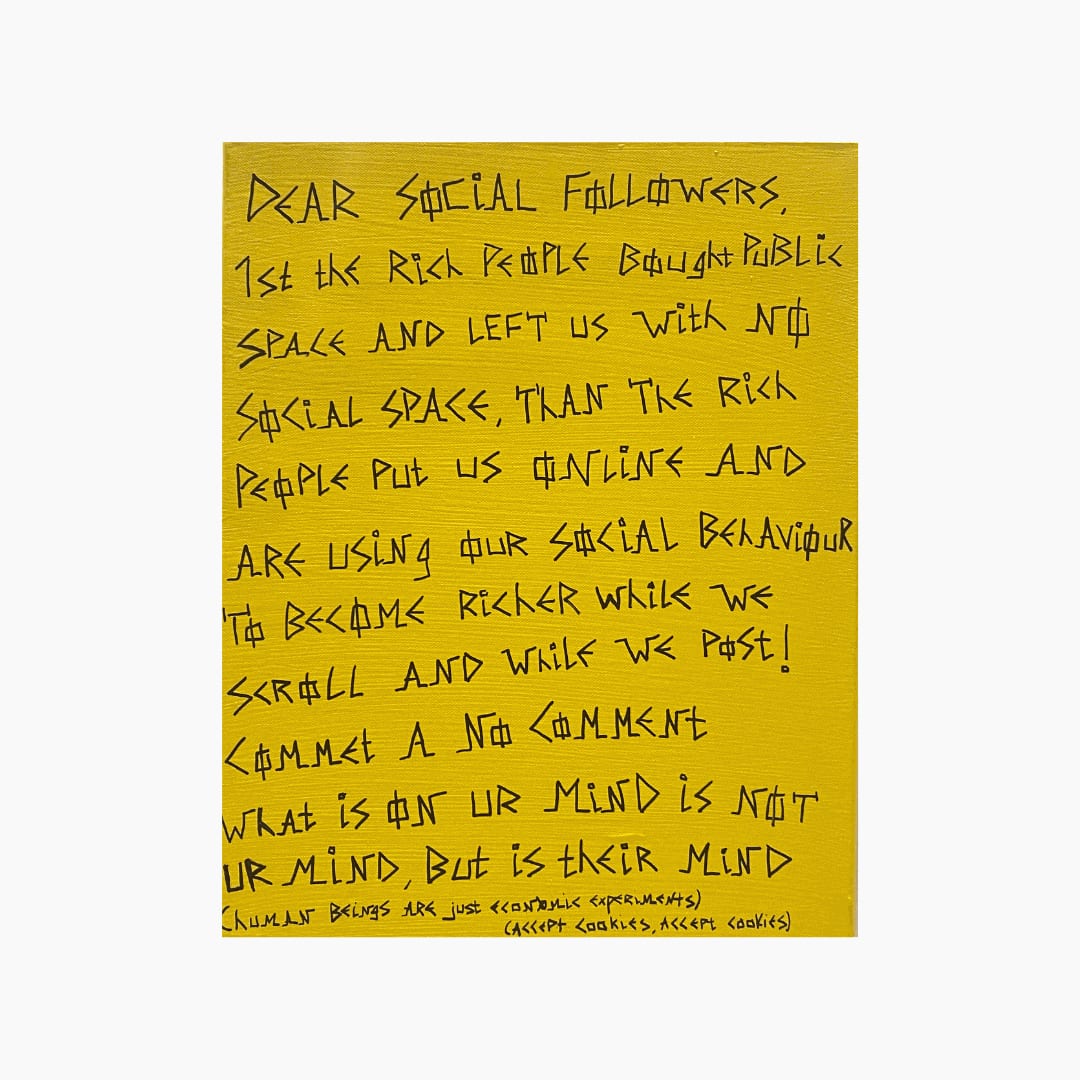 DEAR SOCiAL FOLLOWERS,
1st thE RicH PEOPLE BOught PuBLiC
SPACE AND LEFT US With NO
SOCiAL SPACE, ThAN ThE RicH
PEOPLE Put US ONLiNE AND
ARE USiNg OUR SOCiAL BEhAViOuR
TO BECOME RichER whiLE WE
SCROLL AND WhiLE WE POSt!
COMMEt A NO COMMENt
WhAt iS ON UR MiND iS NOT
UR MiND, But iS thEiR MiND
(hUMAN BEiNgS ARE just ECONOMiC EXPERiMENtS)
(ACCEPt COOKiES, ACCEPt COOKiES)